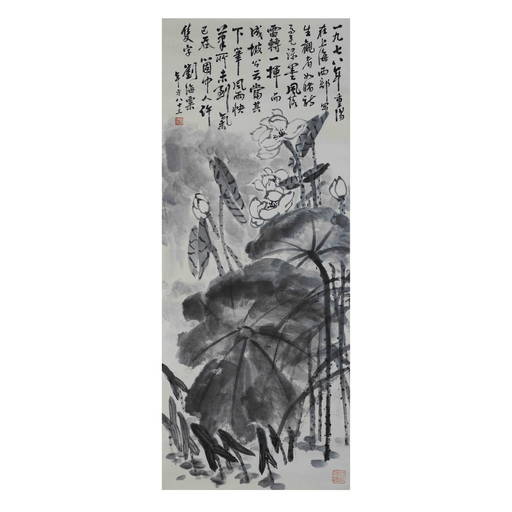 一九七八年重陽
在上海西郊寫
生觀者如堵
潑墨風馳
雷轉一揮而
成坡公云當其
下筆風雨快
筆所未到氣
已吞箇中人許
隻字劉海粟
年方八十三